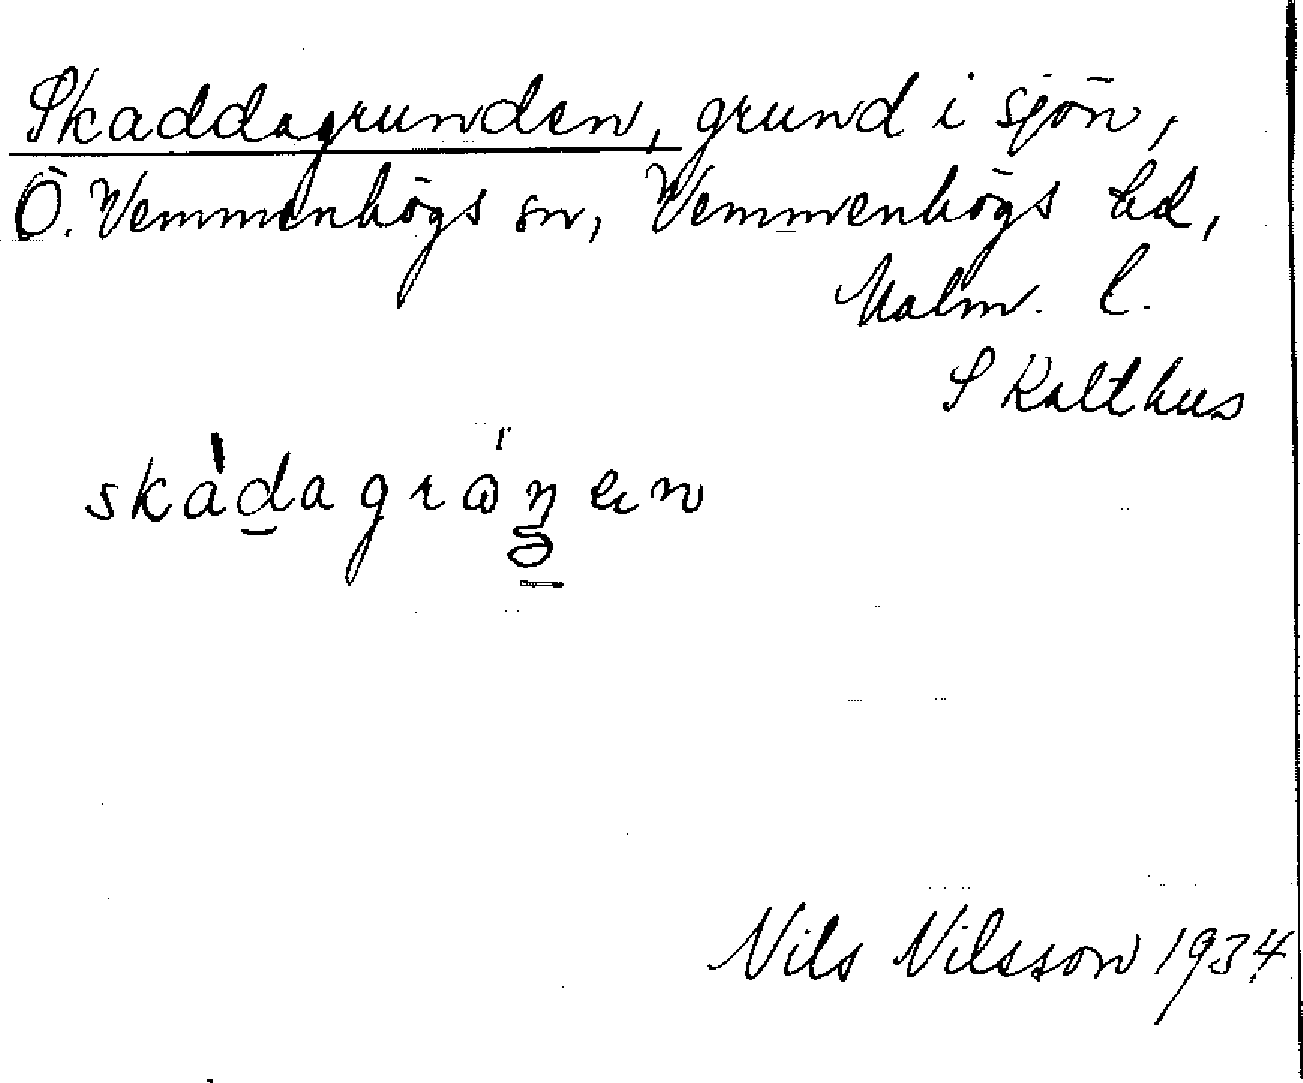 Skaddagrunden, grund i sjön,
Ö. Vemmenhögs sn, Vemmenhögs hd,
Malm. l.
Skalthus
Nils Nilsson 1934